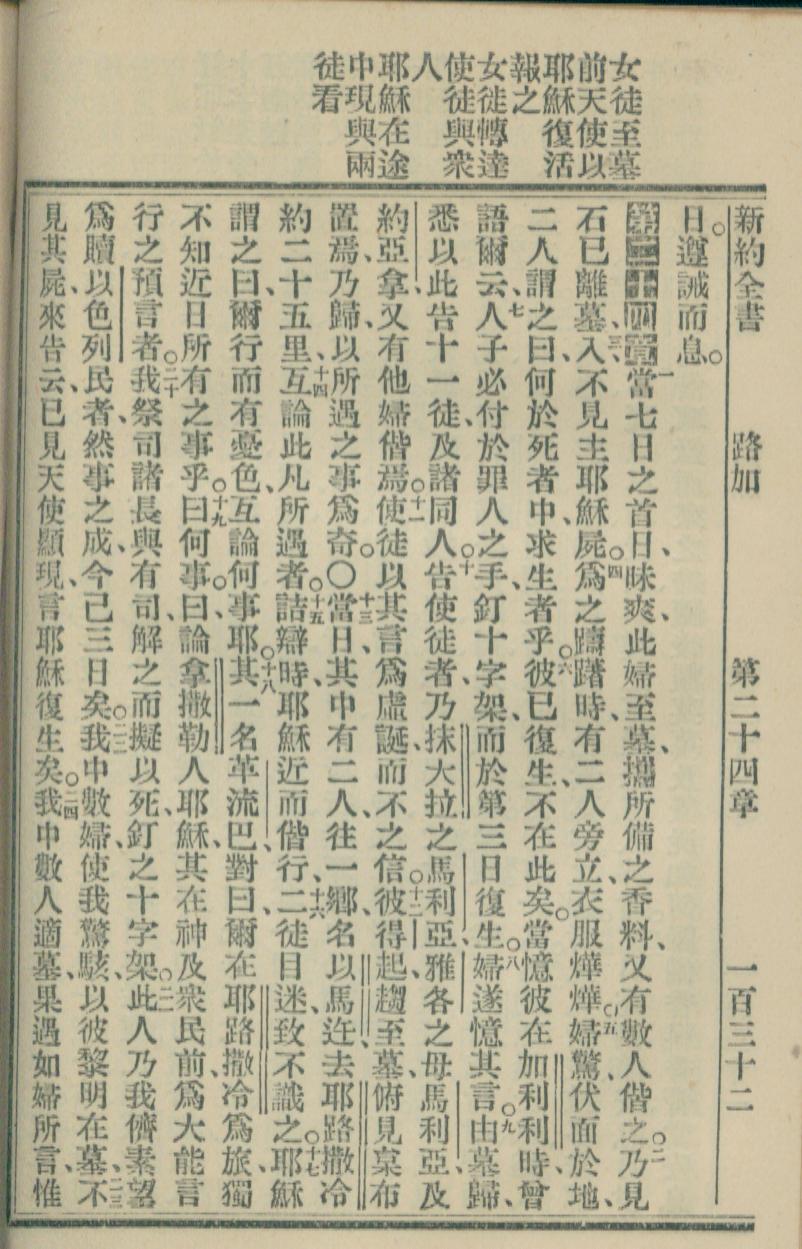 女徒至墓
前天使以
耶穌復活
報之
女徒轉達
使徒與衆
人
耶穌在途
中現與兩
徒看
新約全書 路加 第二十四章 一百三十二
日遵誡而息。
第二十四章 一當七日之首日、昧爽、此婦至墓、攜所備之香料、又有數人偕之。二乃見
石已離墓、三入、不見主耶穌屍。四爲之躊躇時、有二人旁立、衣服燁燁。五婦驚、伏面於地、
二人謂之曰、何於死者中、求生者乎。六彼已復生、不在此矣。當憶彼在加利利時、曾
語爾云、七人子必付於罪人之手、釘十字架、而於第三日復生。八婦遂憶其言。九由墓歸、
悉以此告十一徒、及諸同人。十告使徒者、乃抹大拉之馬利亞、雅各之母馬利亞、及
約亞拿、又有他婦偕焉。十一使徒以其言爲虛誕、而不之信。十二彼得起、趨至墓、俯見枲布
置焉、乃歸、以所遇之事爲奇。〇十三當日、其中有二人、往一鄉、名以馬迕、去耶路撒冷
約二十五里、十四互論此凡所遇者。十五詰辯時、耶穌近而偕行、十六二徒目迷、致不識之。十七耶穌
謂之曰、爾行而有憂色、互論何事耶。十八其一名革流巴、對曰、爾在耶路撒冷爲旅、獨
不知近日所有之事乎。十九曰、何事。曰、論拿撒勒人耶穌、其在神及衆民前、爲大能言
行之預言者。二十我祭司諸長、與有司、解之而擬以死、釘之十字架。二一此人乃我儕素望
爲贖以色列民者、然事之成、今已三日矣。二二我中數婦、使我驚駭、以彼黎明在墓、二三不
見其屍、來告云、已見天使顯現、言耶穌復生矣。二四我中數人適墓、果遇如婦所言、惟